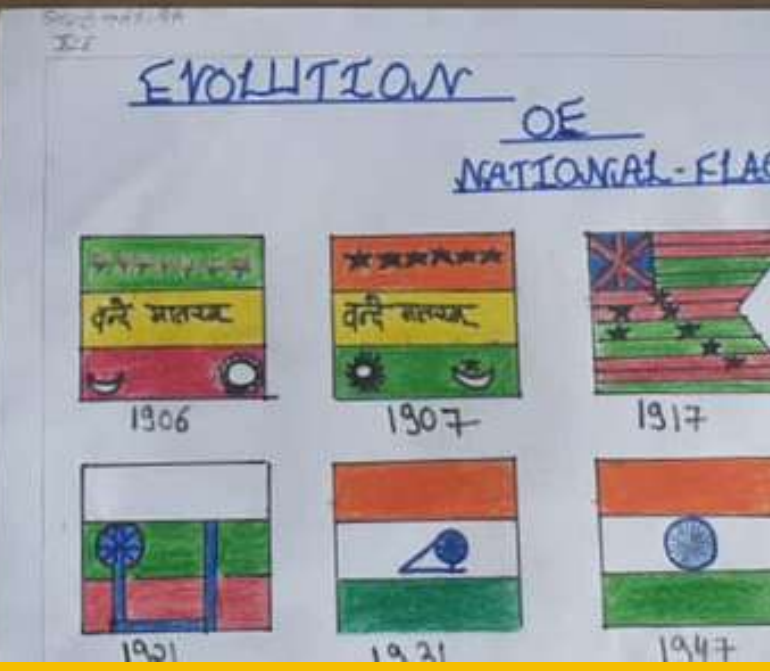 EVOLUTION
OF
NATIONAL-FLAG
वन्दे मातरम
वन्दे मातरम
1906
1907
1917
1921
1931
1947